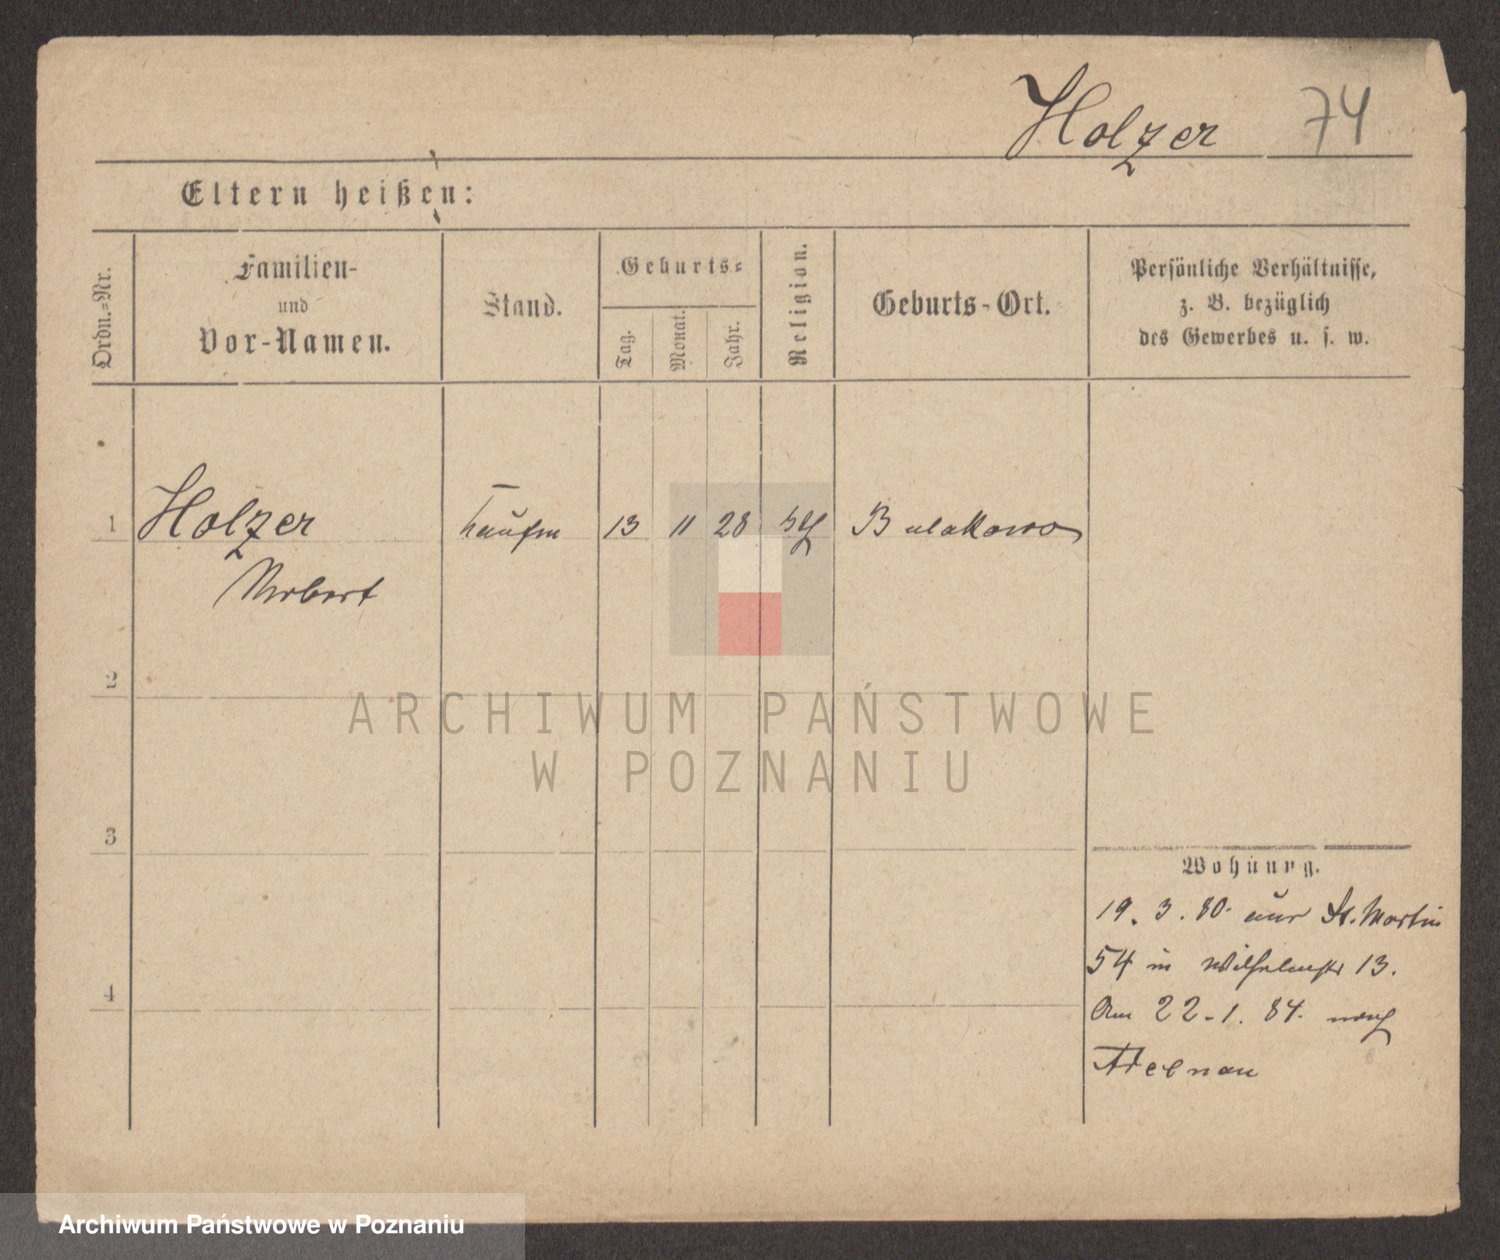 Holzer 74
Eltern heißen:
Ordn.-Nr.
Familien-
und
Vor-Namen.
Stand.
Geburts-
Tag.
Monat.
Jahr.
Religion.
Geburts-Ort.
Persönliche Verhältnisse,
z. B. bezüglich
des Gewerbes u. s. w.
1 Holzer Kaufm 13 11 28 Bulakowo
Norbert
2
ARCHIWUM PAŃSTWOWE
W POZNANIU
3
Wohnung.
19. 3. 80. aus St. Martin
54 in Wilhelmstr 13.
Am 22-1. 84. nach
Adelnau
4
Archiwum Państwowe w Poznaniu